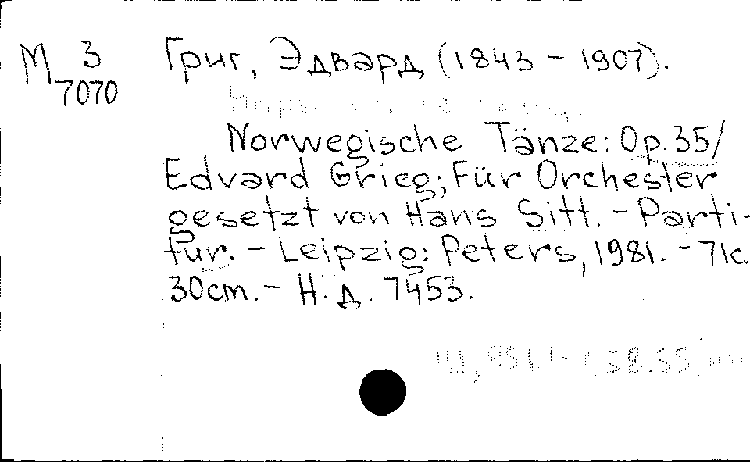 М 3
7070
Григ, Эдвард (1843 - 1907).
Norwegische Tänze: Op. 35/
Edvard Grieg; Für Orchester
gesetzt von Hans Sitt. - Parti-
tur. - Leipzig: Peters, 1981. - 71c.
30cm. - Н. д. 7453.